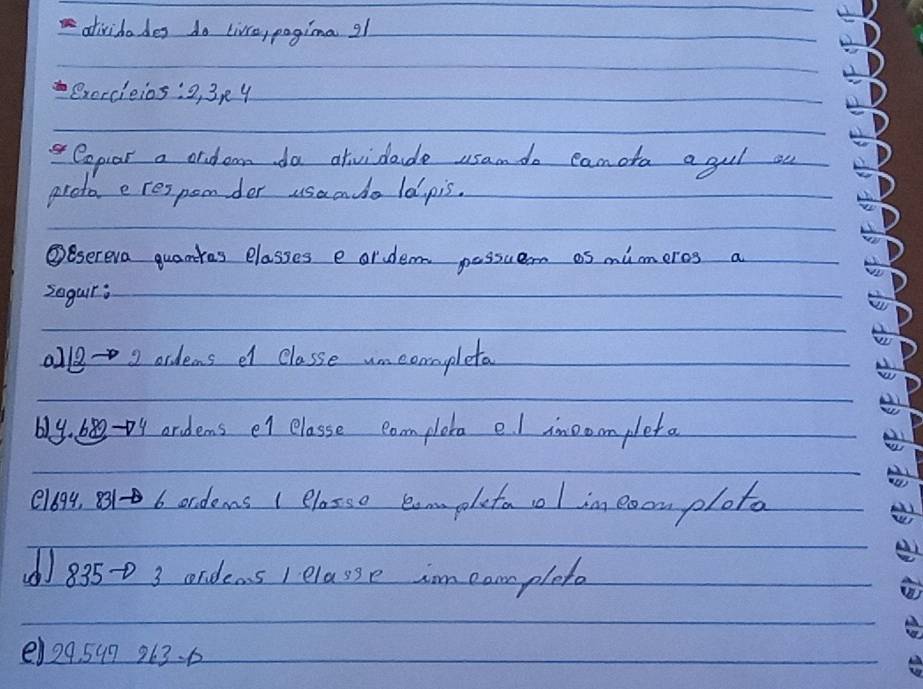 * atividades do livro, pagina 21
* Exercícios: 2, 3, e 4
* Copiar a ordem da atividade usando caneta azul ou
preta e responder usando lápis.
② Escreva quantas classes e ordem possuem os números a
seguir:
a) 12 → 2 ordens e 1 classe incompleta
b) 4.682 → 4 ordens e 1 classe completa e 1 incompleta
c) 694.831 → 6 ordens 1 classe completa e 1 incompleta
d) 835 → 3 ordens 1 classe incompleta
e) 29.549 263 →